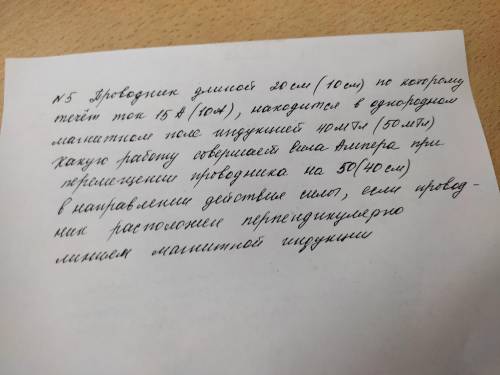 N5 Проводник длиной 20см (10см) по которому
течёт ток 15 А (10А), находится в однородном
магнитном поле индукцией 40мТл (50мТл)
Какую работу совершает Сила Ампера при
перемещении проводника на 50 (40см)
в направлении действия силы, если провод-
ник расположен перпендикулярно
линием магнитной индукции